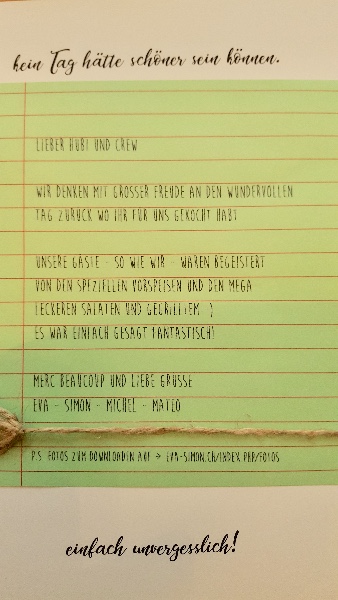 kein Tag hätte schöner sein können.
LIEBER HUBI UND CREW
WIR DENKEN MIT GROSSER FREUDE AN DEN WUNDERVOLLEN
TAG ZURÜCK WO IHR FÜR UNS GEKOCHT HABT
UNSERE GÄSTE - SO WIE WIR - WAREN BEGEISTERT
VON DEN SPEZIELLEN VORSPEISEN UND DEN MEGA
LECKEREN SALATEN UND GEGRILLTEM :)
ES WAR EINFACH GESAGT FANTASTISCH!
MERCI BEAUCOUP UND LIEBE GRÜSSE
EVA - SIMON - MICHEL - MATEO
P.S. FOTOS ZUM DOWNLOADEN AUF → EVA-SIMON.CH/INDEX.PHP/FOTOS
einfach unvergesslich!